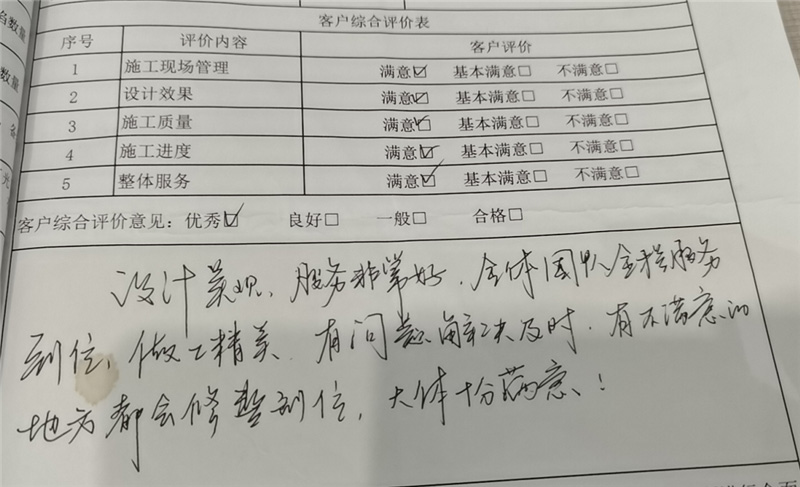 台数量
数量
客户综合评价表
序号 评价内容 客户评价
1 施工现场管理 满意☑ 基本满意□ 不满意□
2 设计效果 满意☑ 基本满意□ 不满意□
3 施工质量 满意☑ 基本满意□ 不满意□
4 施工进度 满意☑ 基本满意□ 不满意□
5 整体服务 满意☑ 基本满意□ 不满意□
客户综合评价意见：优秀☑ 良好□ 一般□ 合格□
设计美观、服务非常好，全体团队全程服务
到位，做工精美，有问题解决及时，有不满意的
地方都会修整到位，大体十分满意！